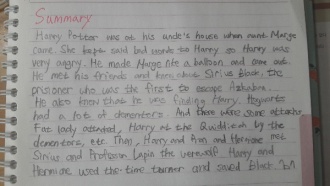 Summary
Harry Potter was at his uncle's house when aunt Marge
came. She kept said bad words to Harry so Harry was
very angry. He made Marge like a balloon and came out.
He met his friends and knew about Sirius Black, the
prisoner who was the first to escape Azkaban.
He also knew that he was finding Harry. Hogwarts
had a lot of dementors. And there were some attacks
Fat lady attacked, Harry at the Quidditch by the
dementors, etc. Then, Harry and Ron and Hermione met
Sirius and Professor Lupin the werewolf. Harry and
Hermione used the time turner and saved Black.